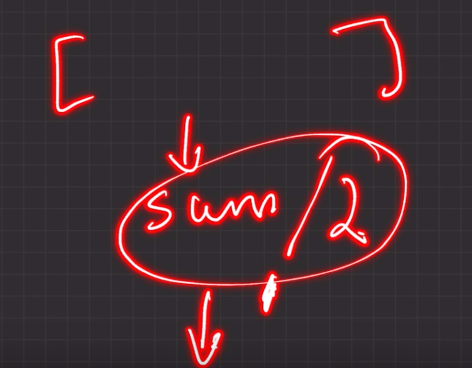 [ ]
sum/2